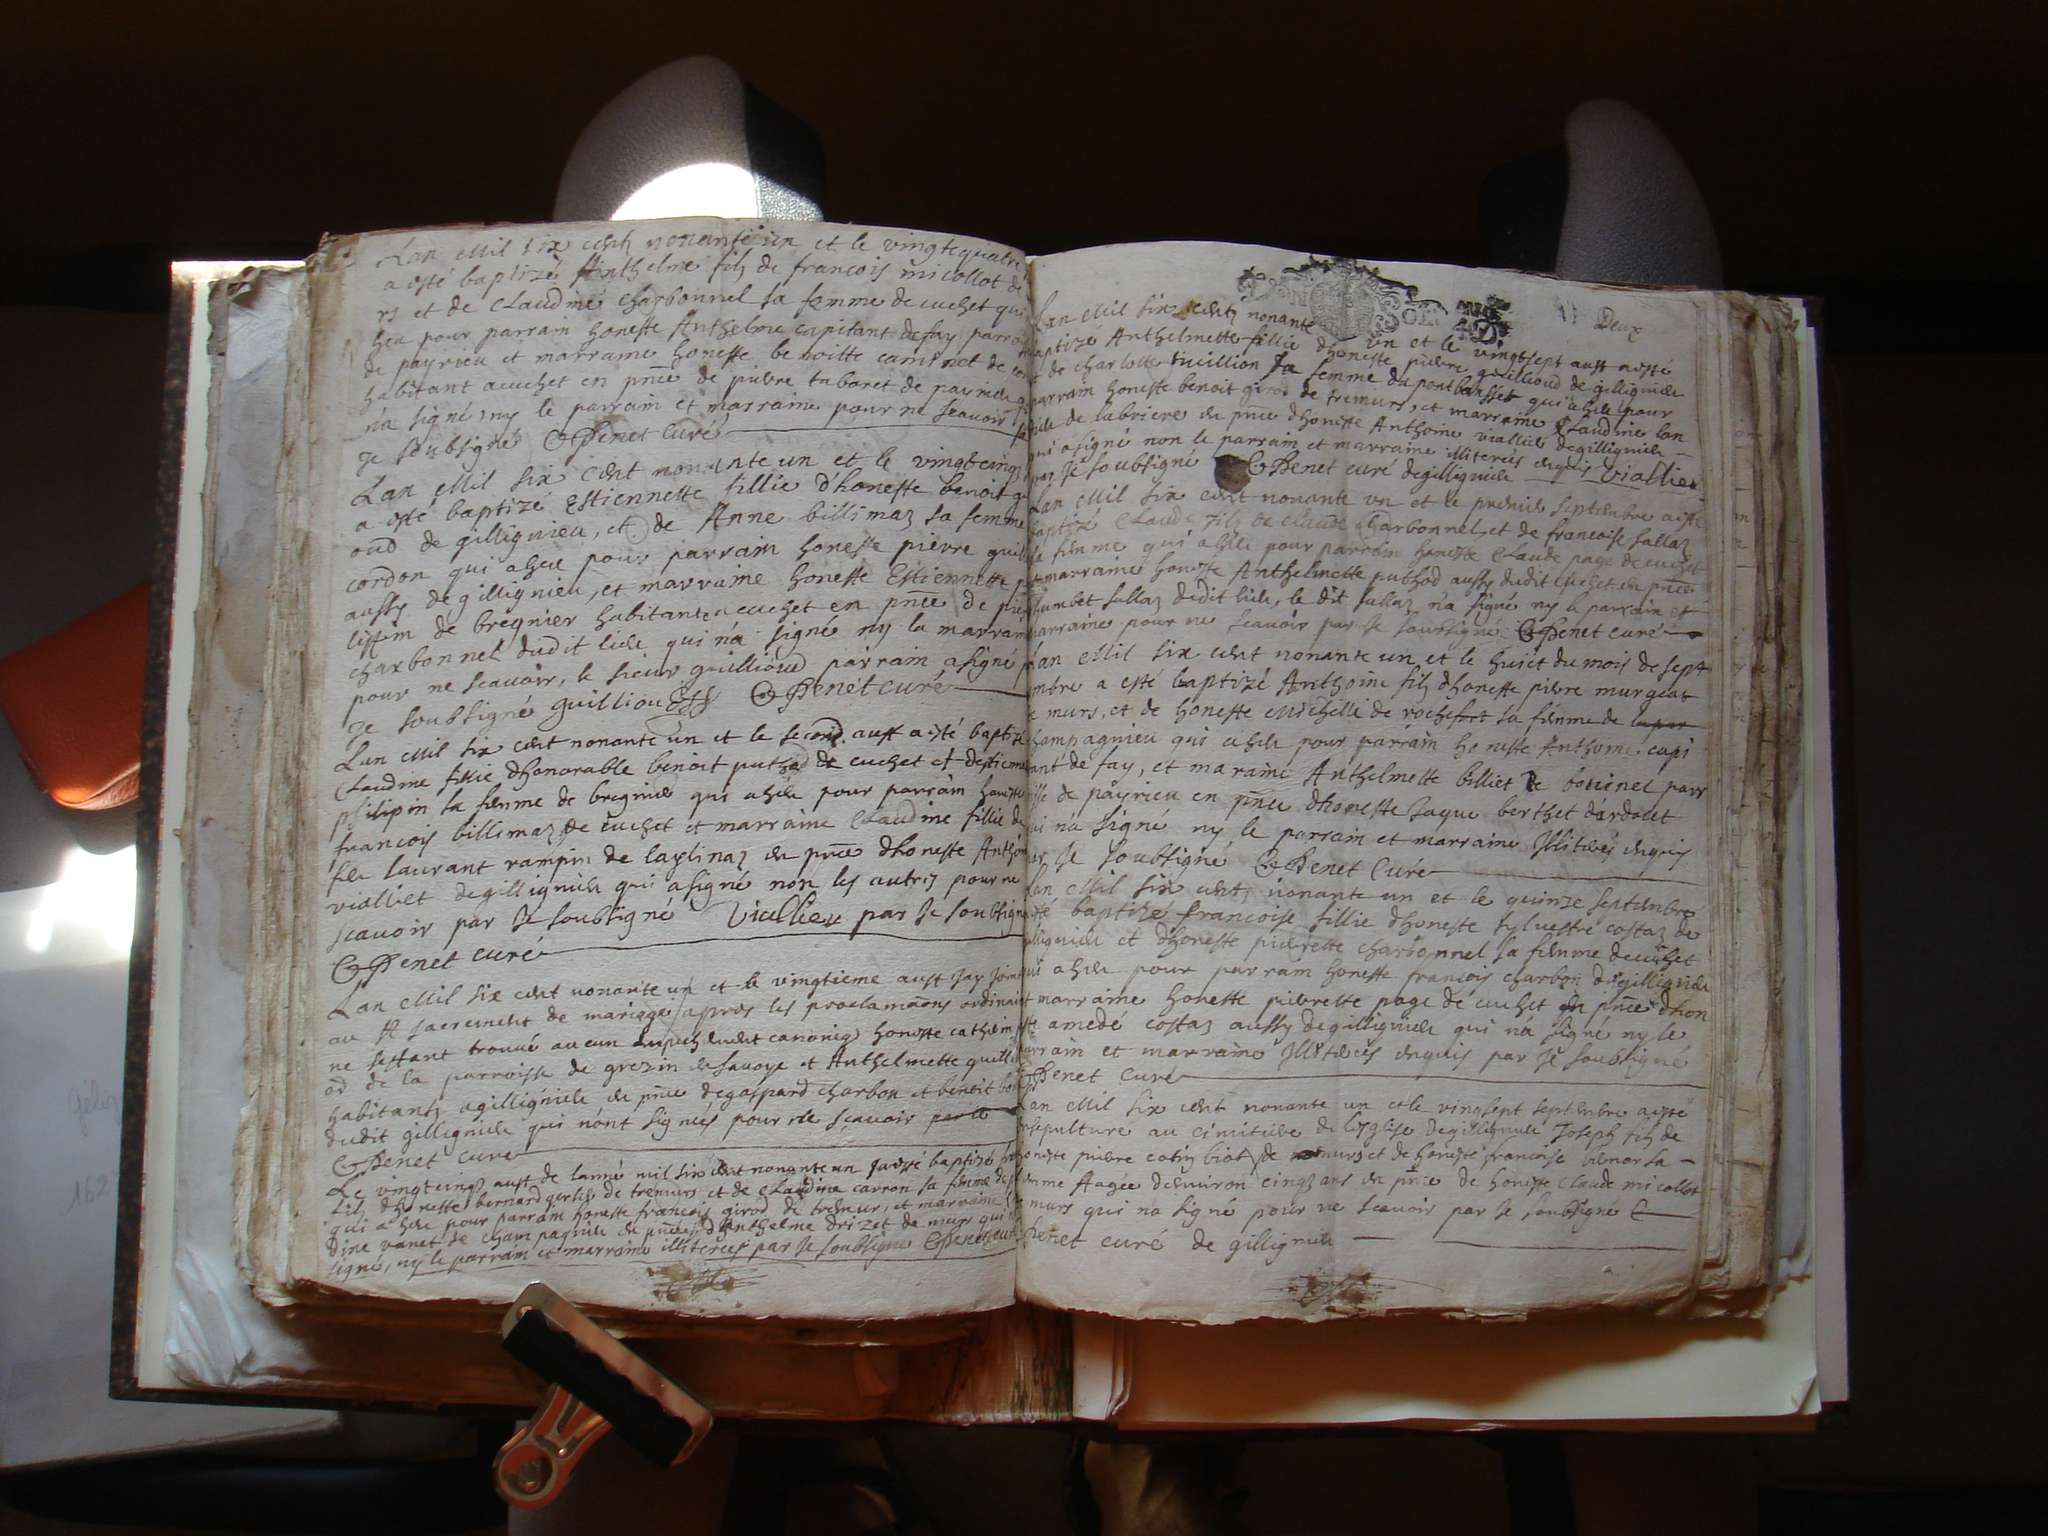 Lan Mil six centz nonante un et le vingtequatre
a esté baptizé Anthelme filz de francois micollot de
rs et de Claudine charbonnel sa femme de cuchet qui
heu pour parrain honeste Anthelme capitant defay parro
de payrieu et marraine honeste benoitte caminet de
habitant acuchet en pnce de pierre tabaret de payrieu
na signé ny le parrain et marraine pour ne scauoir
Je soubsigné Benet Curé
Lan Mil six cent nonante un et le vingtcinq
a esté baptizé Estiennette fillie d'honeste benoit gu
oud de gillignieu, et de Anne billimaz sa femme
cordon qui aheu pour parrain honeste pierre guilli
aussy de gillignieu, et marraine honeste Estiennette
de bregnier habitante acuchet en pnce de pier
charbonnel dudit lieu qui na signé ny la marraine
pour ne scauoir, le sieur guillioud parrain asigné
Je soubsigné guillioud Benet curé
Lan Mil six cent nonante un et le second aust a esté baptizé
Claudine fillie dhonorable benoit puthod de cuchet et destienne
philipin sa femme de bregnieu qui aheu pour parrain honeste
francois billimaz de cuchet et marraine Claudine fillie de
feu laurant rampin de laplinaz en pnce dhoneste Anthoi
violliet degillignieu qui asigné non les autres pour ne
scauoir par Je soubsigné Viallier par Je soubsigné
Benet curé
Lan Mil six cent nonante un et le vingtieme aust Jay Joint
au St sacrement de mariage apres les proclamaons ordinair
ne sestant trouué aucun empechement canoniq honeste
od de la parroisse de grezin en sauoye et Anthelmette guilli
habitantz agillignieu en pnce degaspard charbon et benoit
dudit gillignieu qui nont signés pour ne scauoir par Je
Benet curé
Le vingtcinq aust de lanné mil six cent nonante un Ja esté baptizé
filz dhoneste bernard de tremurs et de Claudine carron sa femme de
qui aheu pour parrain honeste francois girod de tremur, et marraine
dine vanet de champagnieu en pnce d'Anthelme drizet de murs qui
signé, ny le parrain et marraine illiterees par Je soubsigné Benet curé
Deux
Lan Mil six centz nonante vn et le vingtsept aust aesté
baptizé Anthelmette fillie dhoneste pierre guillioud de gillignieu
et de charlotte sa femme du pontbansset qui aheu pour
parrain honeste benoit girod de tremurs, et marraine Claudine lan
de labriere en pnce dhoneste Anthoine viallier degillignieu
qui asigné non le parrain et marraine illiterés enquis Viallier
par Je soubsigné Benet curé degillignieu
Lan Mil six cent nonante vn et le premier septembre aesté
baptizé Claude filz de claude Charbonnel, et de francoise sallaz
sa femme qui aheu pour parrain honeste Claude page de cuchet
et marraine honeste Anthelmette puthod aussy dudit cuchet en pnce
sallaz dudit lieu, le dit sallaz na signé ny le parrain et
marraine pour ne scauoir par Je soubsigné Benet curé
Lan Mil six cent nonante un et le huict du mois de sept
embre a esté baptizé Anthoine filz dhoneste pierre murgeat
e murs, et de honeste michelle de rochefort sa femme de
champagnieu qui aheu pour parrain honeste Anthoine capi
tant de fay, et maraine Anthelmette billiet de parr
oisse de payrieu en pnce dhoneste Jaque berthet
qui na signé ny le parrain et marraine Illiterés enquis
par Je soubsigné Benet Curé
Lan Mil six centz nonante un et le quinze septembre
esté baptizé francoise fillie dhoneste sylvestre costaz de
gillignieu et dhoneste pierrette charbonnel sa femme decuchet
qui aheu pour parrain honeste francois charbon degillignieu
et marraine honeste pierrette page de cuchet en pnce dhon
este amedé costaz aussy degillignieu qui na signé ny le
parrain et marraine Illiterés enquis par Je soubsigné
Benet curé
Lan Mil six cent nonante un et le vingsept septembre aesté
sepulture au cimitiere de leglise degillignieu Joseph filz de
honeste pierre cotin biot de murs et de honeste francoise sa
femme Aagée denuiron cinqz ans en pnce de honeste Claude micollot
murs qui na signé pour ne scauoir par Je soubsigné
Benet curé de gillignieu